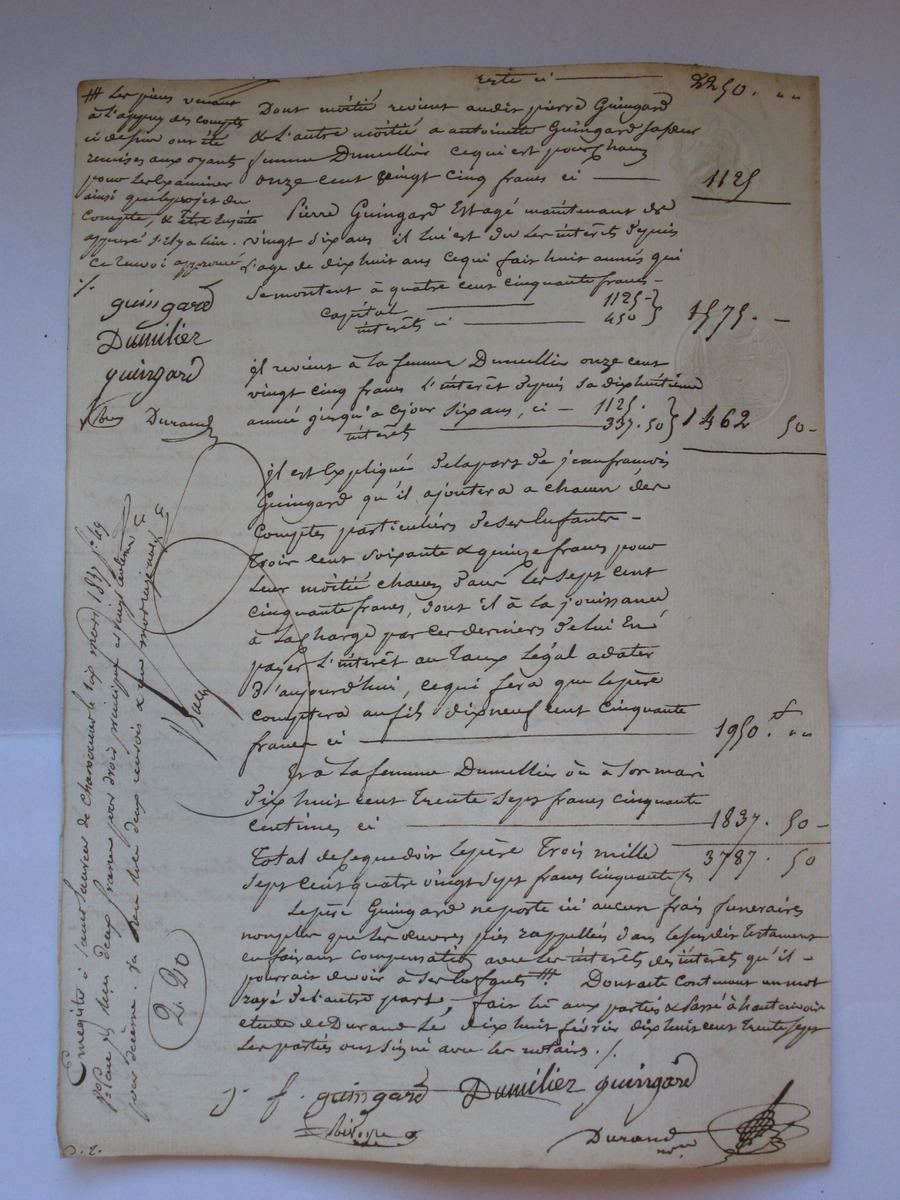 reste ci 2250. " "
Dont moitié revient audit pierre Guingard
& l'autre moitié a antoinette Guingard sa sœur
femme Dumellier ce qui est pour chacun
onze cent vingt cinq francs ci 1125
Pierre Guingard Est agé maintenant de
vingt six ans il lui est du les intérêts depuis
l'age de dix huit ans ce qui fait huit années qui
se montent à quatre cent cinquante francs -
capital 1125 -
intérêts ci 450 } 1575. -
il revient à la femme Dumellier onze cent
vingt cinq francs l'intérêt depuis sa dixhuitième
année jusqu'a ce jour six ans, ci - 1125.
intérêts 337. 50 } 1462 50 -
il est Expliqué de la part de jean francois
Guingard qu'il ajoutera a chacun des
Comptes particuliers de ses Enfants -
trois cent soixante & quinze francs pour
leur moitié chacun dans les sept cent
cinquante francs, dont il à la jouissance
à la charge par ces derniers de lui En
payer l'intérêt au taux légal a dater
d'aujourd'hui, ce qui fera que le père
comptera au fils dix neuf cent cinquante
francs ci 1950. f " "
Et à la femme Dumellier ou à son mari
dix huit cent trente sept francs cinquante
centimes ci 1837. 50 -
Total de ce que doit le père Trois mille 3787. 50
sept cent quatre vingt sept francs cinquante
Le père Guingard ne porte ici aucun frais funeraires
non plus que les œuvres pies rappellés dans le susdit testament
en faisant compensation avec les intérêts des intérêts qu'il -
pourrait devoir à ses Enfants ### Dont acte Contenant un mot
rayé de l'autre part, fait lû aux parties & passé à
étude de Durand Le dix huit février dix huit cent trente sept
Les parties ont signé avec les notaires ./.
j. f. guingard Dumilier guingard
Durand
### Les pieces venant
à l'appuy des comptes
ci dessus ont été
remises aux oyants
pour les Examiner
ainsi que le projet du
Compte, & être Ensuite
appuré s'il y a lieu.
Ce renvoi approuvé
./.
guingard
Dumilier
guingard
Durand
Enregistré à saint laurent de Chamousset le six mars 1837 f° 49
Reçu deux francs pour droit principal et vingt centimes
pour décime.
2. 20